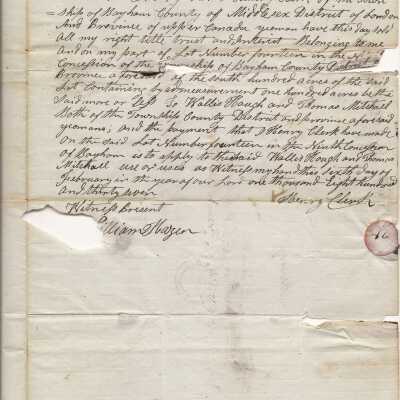 ship of Bayham County of Middlesex District of London
And Province of upper Canada yeoman have this day sold
All my right title trust and intrist Belonging to me
And on my part of Lot Number fourteen in the
Concession of the ship of Bayham County
Provinc aforesaid of the South hundred acres of the said
Lot Containing by admeasurement one hundred acres be the
Said more or less To Wallis Haugh and Thomas Mitchell
Both of the Township County District and Province aforesaid
yeomans, and the payment that I Henry Clerk have made
On the said Lot Number fourteen in the Ninth Concession
of Bayham is to apply to the said Wallis Hough and Thomas
Mitchell use or uses as Witness my hand this Sixth day of
February in the year of our Lord one thousand Eight hundred
and thirty seven
Henry Clerk
Witness Present
William Hazen